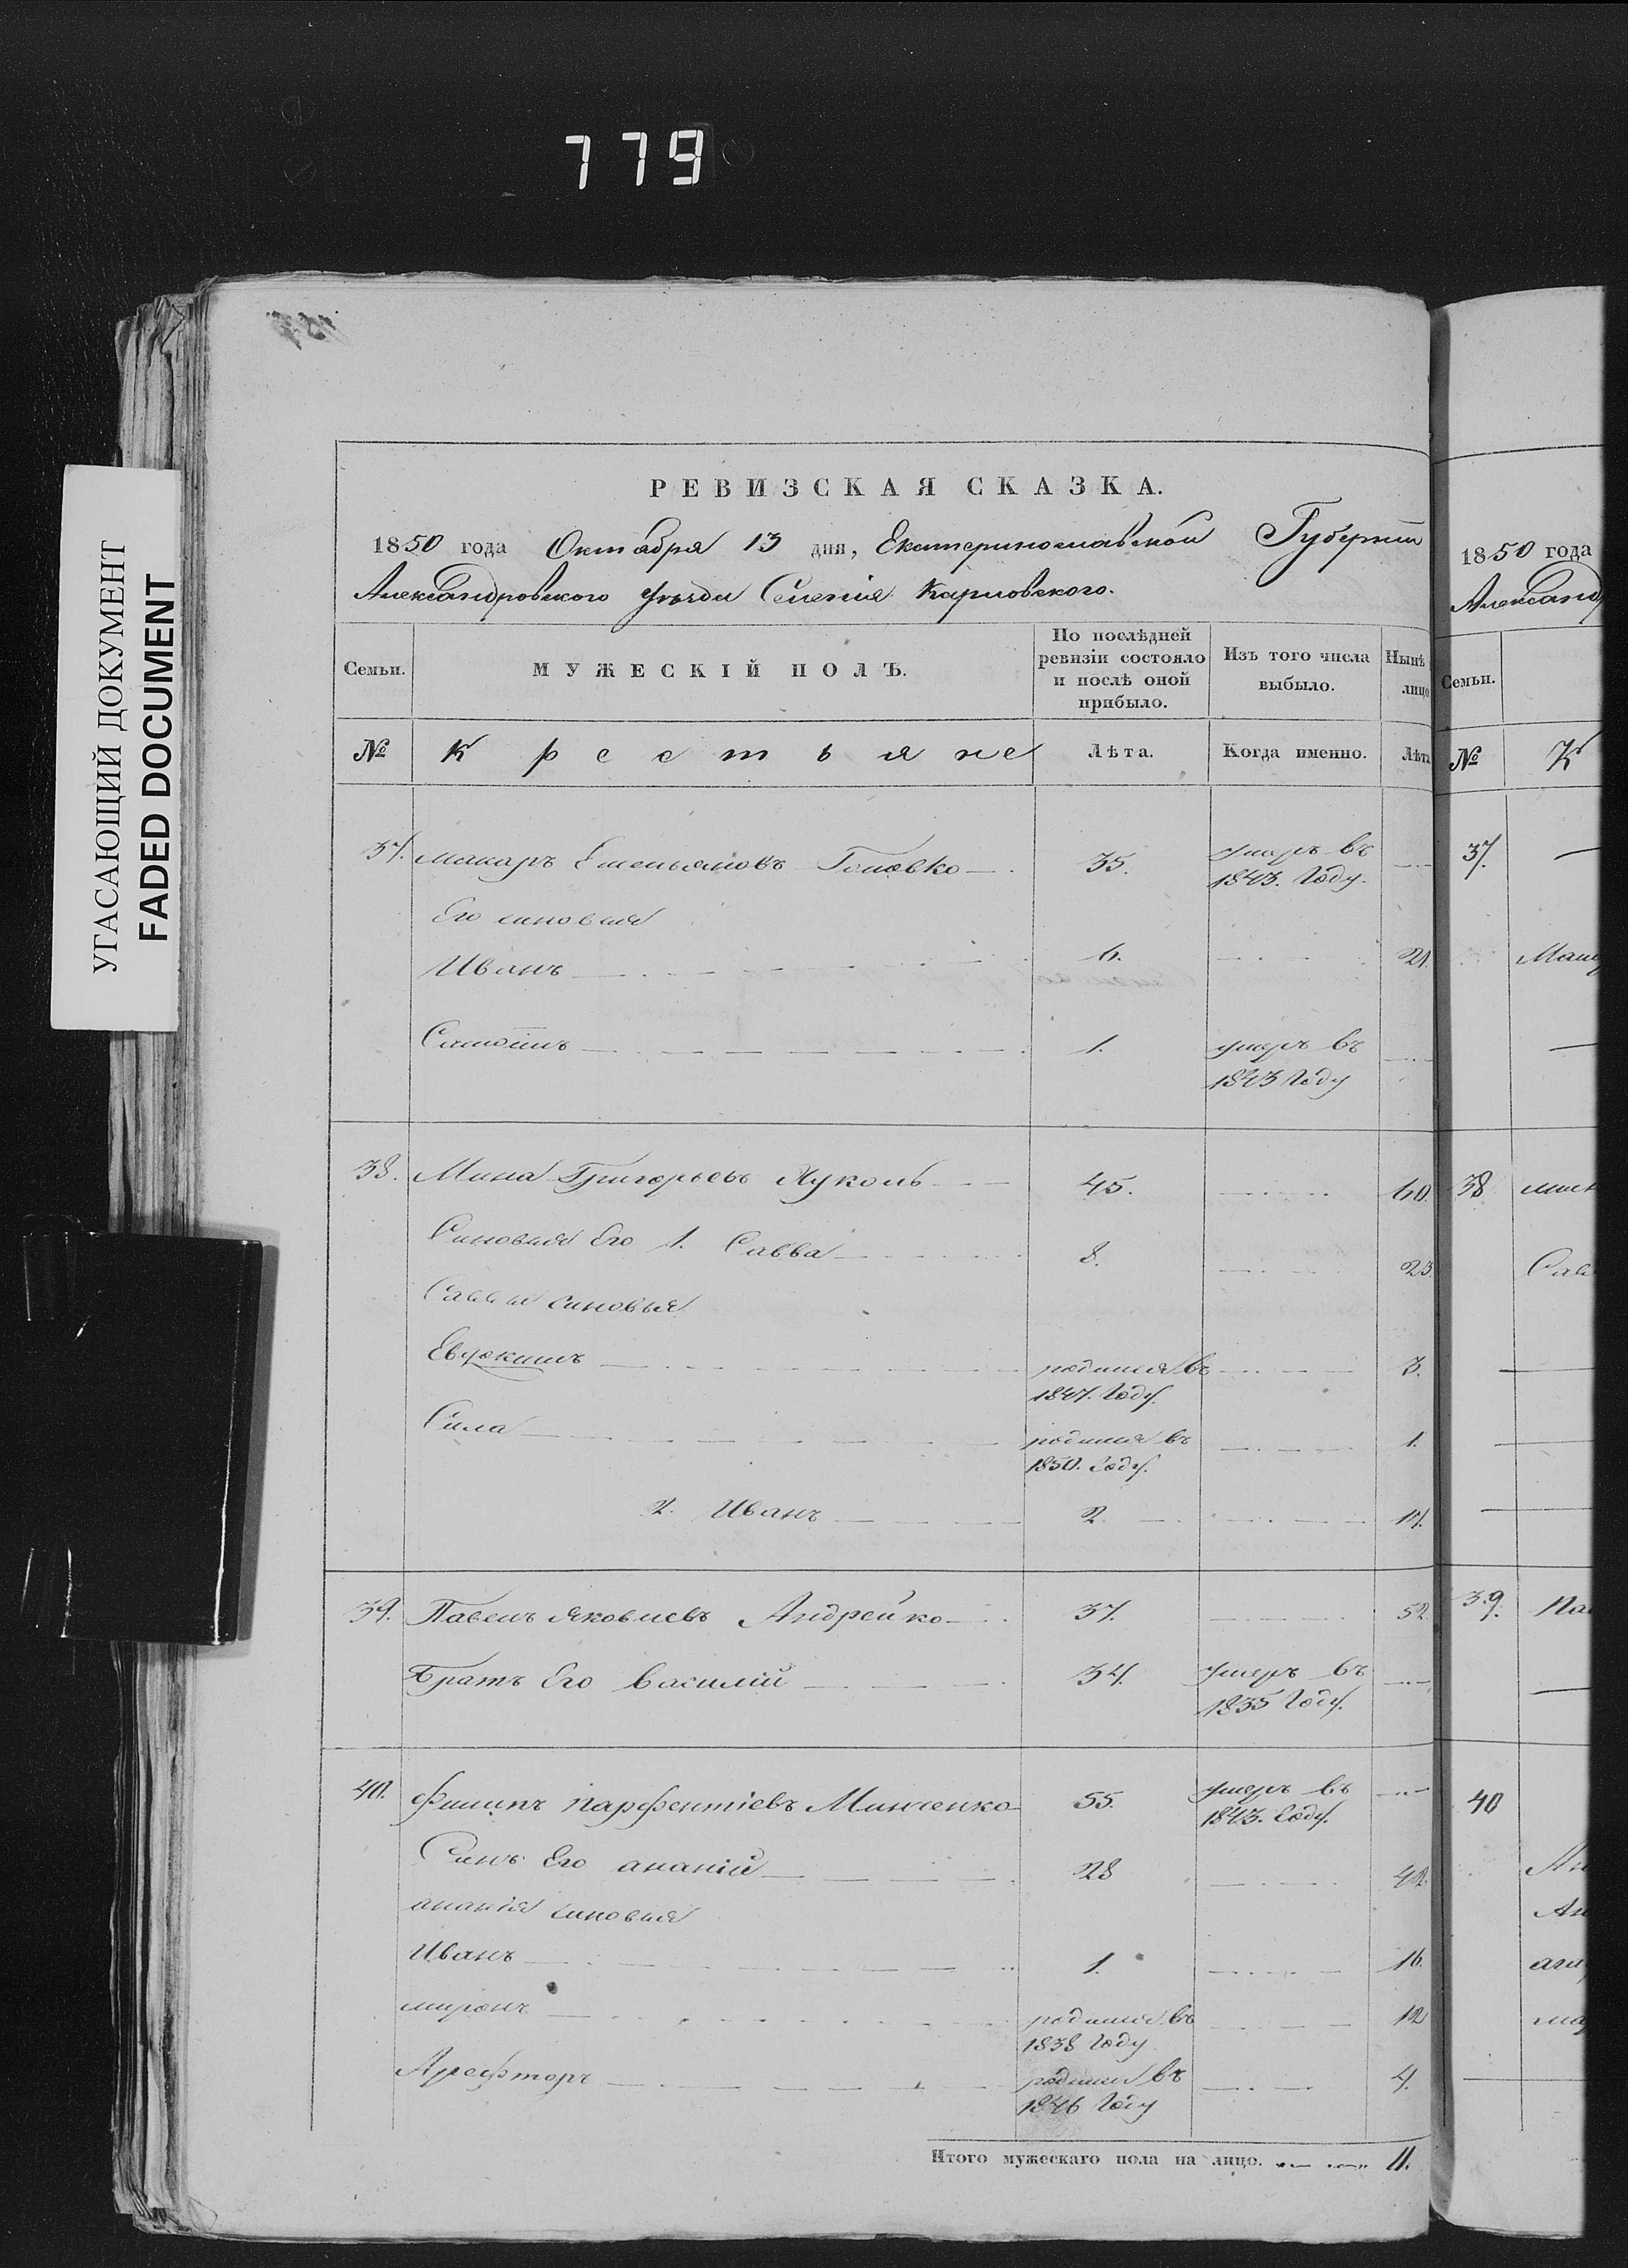 779
УГАСАЮЩИЙ ДОКУМЕНТ
FADED DOCUMENT
РЕВИЗСКАЯ СКАЗКА.
1850 года Октября 13 дня, Екатеринославской Губернiи
Александровского уѣзда Селенiя Карловского.
Семьи. МУЖЕСКIЙ ПОЛЪ. По послѣдней ревизiи состояло и послѣ оной прибыло. Изъ того числа выбыло. Нынѣ лицо
№ Крестьяне Лѣта. Когда именно. Лѣта
37. Макаръ Емельяновъ Головко 35. умеръ въ 1843. Году.
Его синовья
Иванъ 6. 21.
1. умеръ въ 1843 Году
38. Мина Григорьевъ 45. 60.
Синовья Его 1. Савва 8. 23.
Саввы синовья
Евдокимъ родился въ 1847. Году. 3.
Сила родился въ 1850. Году. 1.
2. Иванъ 2 17.
39. Павелъ Яковлевъ Андрейко 37. 52.
Братъ Его Василiй 34. умеръ въ 1835 Году.
40. Филипъ Парфентiевъ Минченко 55. умеръ въ 1843. Году.
Синъ Его Ананiй 28 42.
Ананiя синовья
Иванъ 1. 16.
Миронъ родился въ 1838 Году 12
родился въ 1846 Году 4.
Итого мужескаго пола на лицо. 11.
1850 года
Александ
Семьи.
№ К
37.
38
39.
40